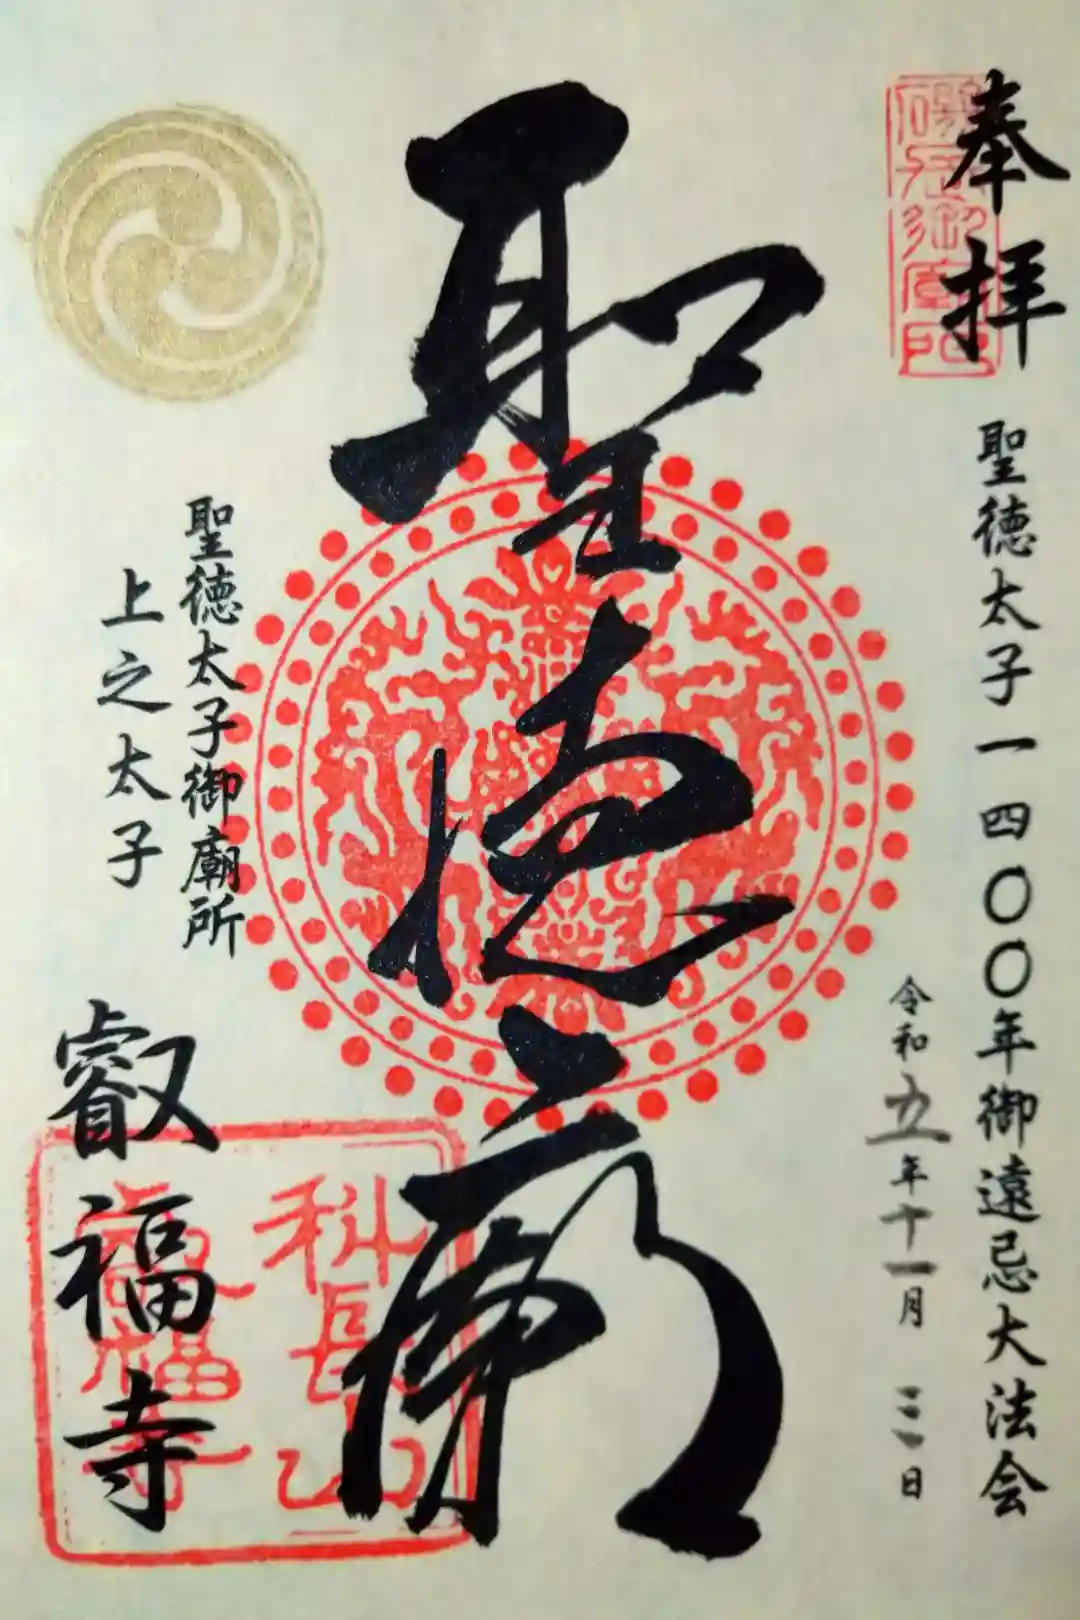 奉拝
聖徳太子一四〇〇年御遠忌大法会
令和五年十一月三日
聖徳廟
聖徳太子御廟所
上之太子
叡福寺
科長山
叡福寺